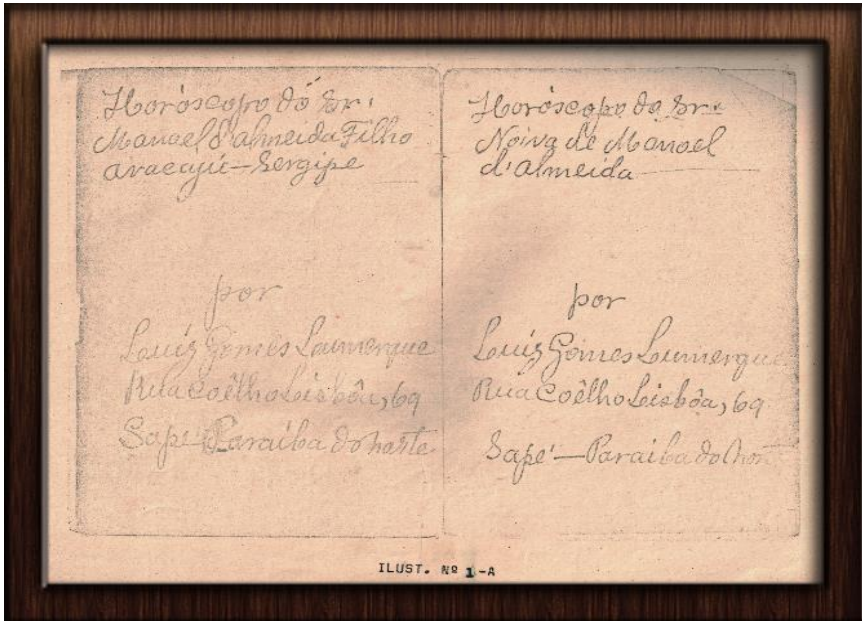 Horóscopo do Sr.
Manoel d'Almeida Filho
Aracajú—Sergipe
por
Luiz Gomes Lumerque
Rua Coêlho Lisbôa, 69
Sapé—Paraiba do Norte
Horóscopo da Sr.
Noiva de Manoel
d'Almeida
por
Luiz Gomes Lumerque
Rua Coêlho Lisbôa, 69
Sapé—Paraiba do Nor
ILUST. Nº 1-A